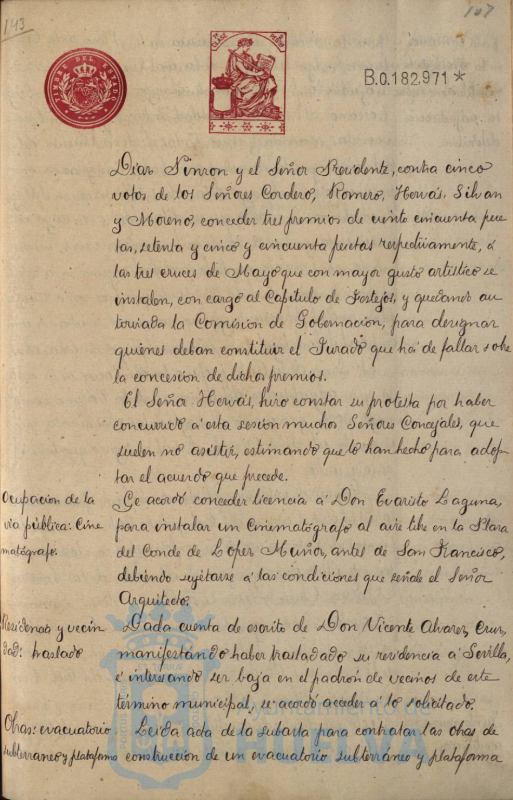 143
107
TIMBRE DEL ESTADO
B.0.182,971*
Dias Pinzon y el Señor Presidente, contra cinco
votos de los Señores Cordero, Romero, Hervás, Silvan
y Moreno, conceder tres premios de ciento cincuenta pese
tas, setenta y cinco y cincuenta pesetas respectivamente, á
las tres cruces de Mayo que con mayor gusto artístico se
instalen, con cargo al Capítulo de Festejos, y quedando au
torizada la Comisión de Gobernación, para designar
quiénes deban constituir el Jurado que há de fallar sobre
la concesión de dichos premios.
El Señor Hervás, hizo constar su protesta por haber
concurrido á esta sesión muchos Señores Concejales, que
suelen no asistir, estimando que lo han hecho para adop
tar el acuerdo que precede.
Ocupación de la
via pública: Cine
matógrafo.
Se acordó conceder licencia á Don Evaristo Laguna,
para instalar un Cinematógrafo al aire libre en la Plaza
del Conde de López Muñoz, antes de San Francisco,
debiendo sujetarse á las condiciones que señale el Señor
Arquitecto.
Residencia y vecin
dad: traslado
Dada cuenta de escrito de Don Vicente Alvarez Cruz,
manifestando haber trasladado su residencia á Sevilla,
é interesando ser baja en el padrón de vecinos de este
término municipal, se acordó acceder á lo solicitado.
Obras: evacuatorio
subterraneo y plataforma
Leida acta de la subasta para contratar las obras de
construcción de un evacuatorio subterráneo y plataforma
Ayuntamiento de
HUELVA